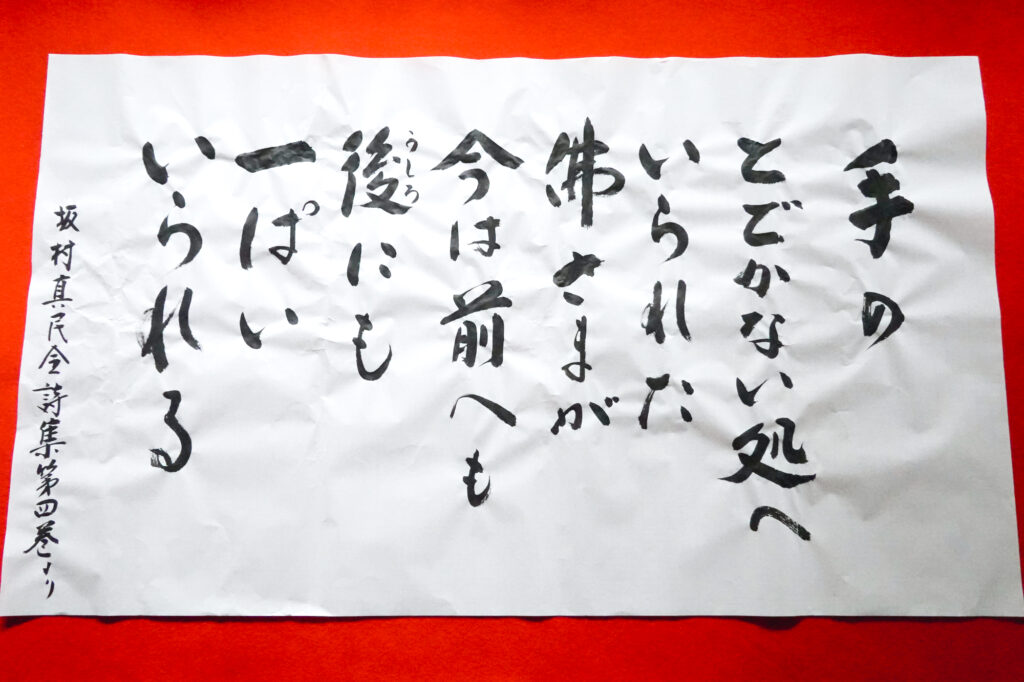 手の
とどかない処へ
いられた
佛さまが
今は前へも
後にも
うしろ
一ぱい
いられる
坂村真民全詩集第四巻より